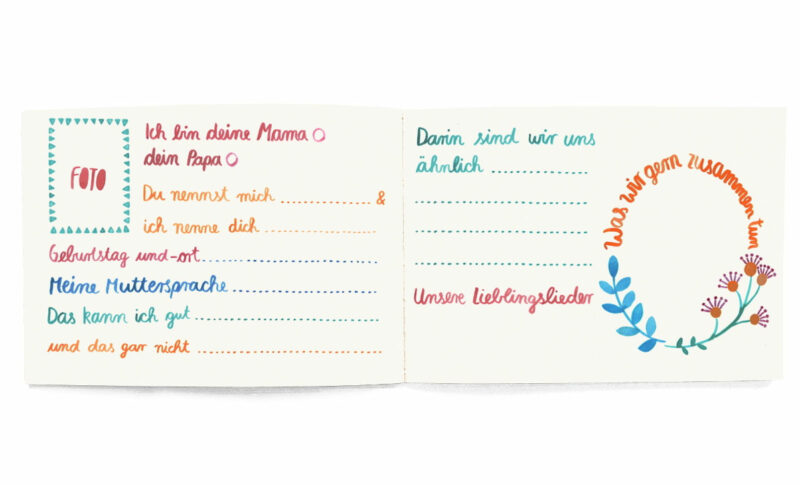 FOTO
Ich bin deine Mama
dein Papa
Du nennst mich ........................ &
ich nenne dich ........................
Geburtstag und -ort ........................
Meine Muttersprache ........................
Das kann ich gut ........................
und das gar nicht ........................
Darin sind wir uns
ähnlich ........................
Unsere Lieblingslieder
Was wir gern zusammen tun